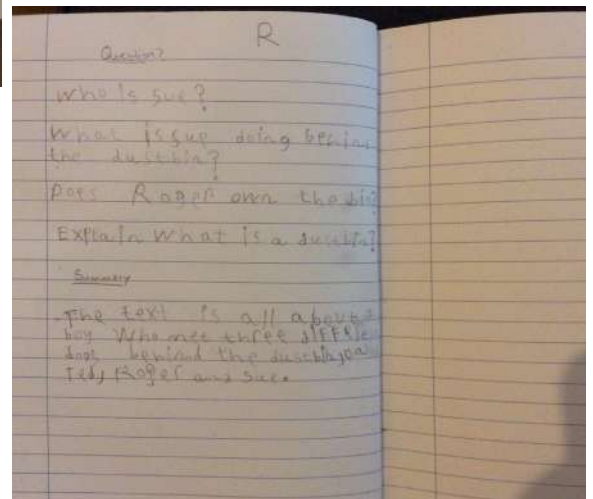 R
Question?
Who is sue?
What is sue doing behind
the dustbin?
Does Roger own the bin?
Explain What is a dustbin?
Summary
The text is all about a
boy Who met three
dogs behind the dustbin
Ted, Roger and Sue.